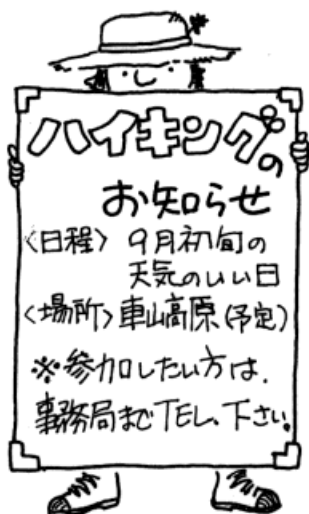 ハイキングの
お知らせ
〈日程〉 9月初旬の
天気のいい日
〈場所〉車山高原(予定)
※参加したい方は、
事務局までTEL、下さい。